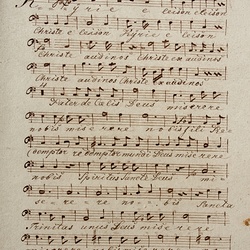 Kyrie eleison eleison
Christe eleison Kyrie eleison
Christe audi nos Christe exaudi nos
Pater de Cælis Deus miserere
nobis miserere nobis fili Re
demptor redemptor mundi Deus miserere
nobis Spiritus Sancte Deus mi
serere nobis Sancta
Trinitas unus Deus miserere